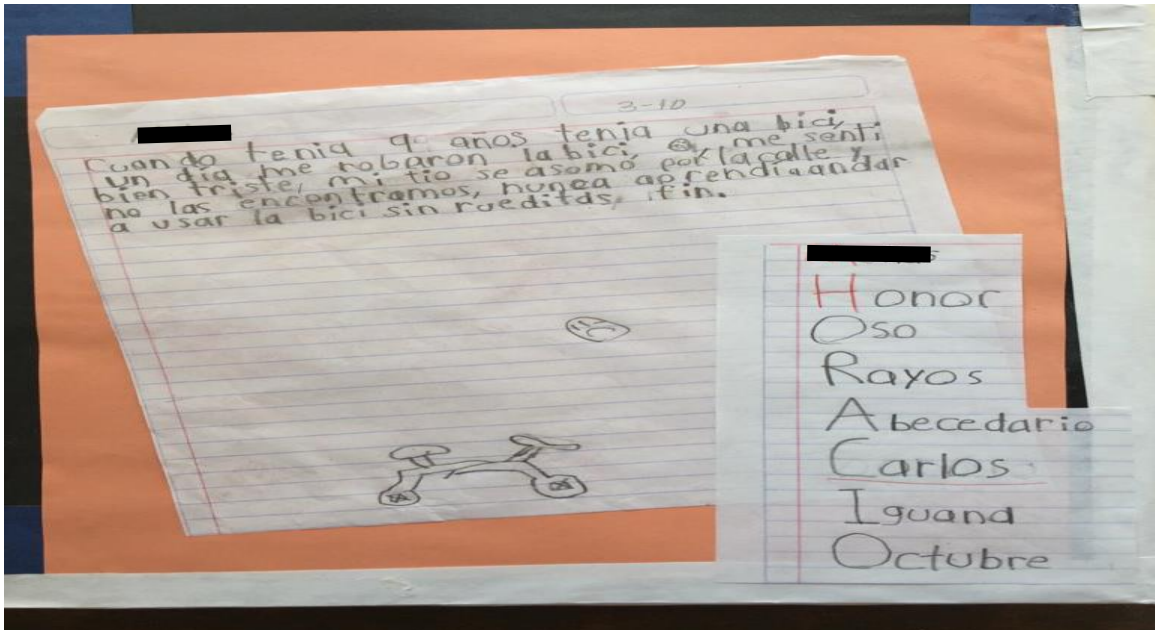 3-10
Cuando tenia 9 años tenia una bici,
un dia me robaron la bici, me senti
bien triste, mi tio se asomó por la calle y
no las encontramos, nunca aprendi a andar
a usar la bici sin rueditas, fin.
Honor
Oso
Rayos
Abecedario
Carlos
Iguana
Octubre